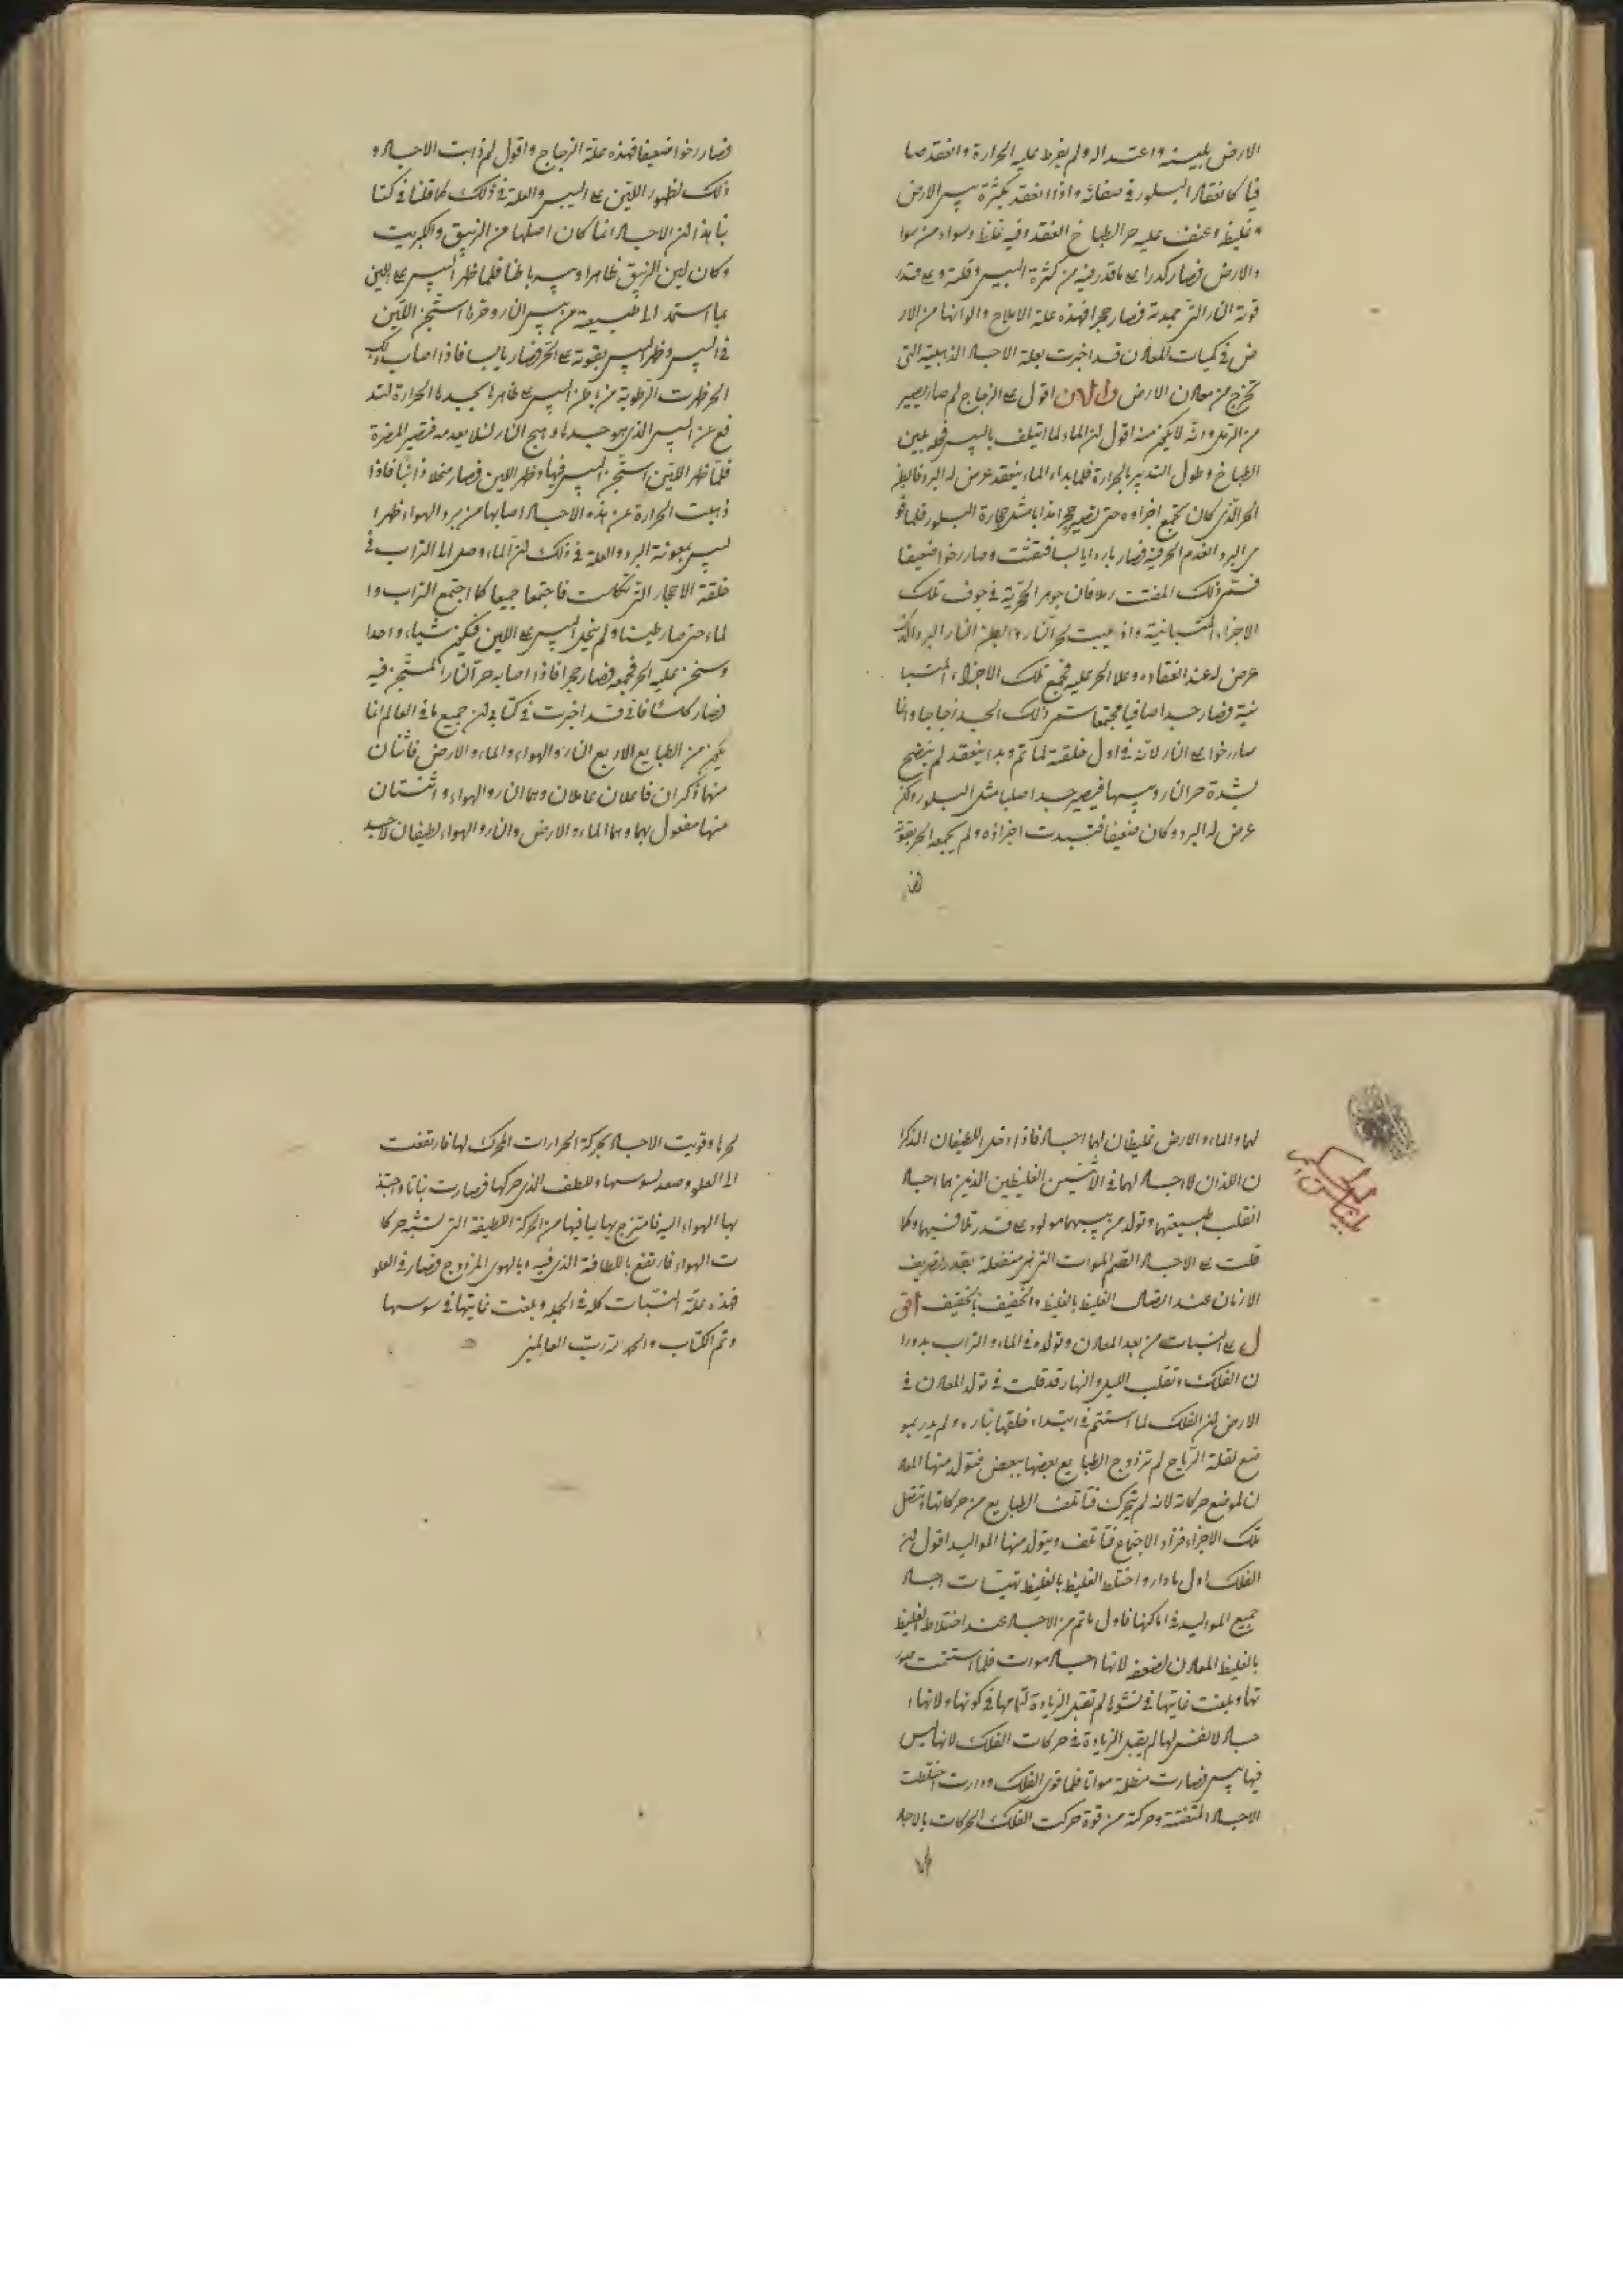 الارض بلينه واعتداله ولم يفرط عليه الحرارة وانعقد صا
فيا كانعقاد البلور في صفائه واذا انعقد بكثرة يبس الارض
وغليظ وعنف عليه حر الطباخ انعقد وفيه غلظ وسواد من سوا
د الارض فصار كدرا على ما قدر فيه من كثرة اليبس وقلته وعلى قدر
قوة النار التي جمدته فصار حجرا فهذه علة الاملاح والوانها من الار
ض في كميات المعادن قد اخبرت بعلة الاجساد الذهبية التي
تخرج من معادن الارض والان اقول على الزجاج لم صار يصير
من الرمل وانه لا يكون منه اقول ان الماء لما ايتلف باليبس في لين
الطباخ وطول التدبير بالحرارة فلما بدا الماء ينعقد عرض له البرد فابطن
الحر الذي كان يجمع اجزاوه حتى تصير حجرا ذايبا مثل حجارة البلور فلما قو
ي البرد انعدم الحر فيه فصار باردا يابسا فتفتت وصار رخوا ضعيفا
فسمي ذلك المفتت رملا فان جوهر الحرية في جوف تلك
الاجزاء المتباينة واذا اصيبت بحر النار ابطن النار البرد الذي
عرض له عند انعقاده وعلا الحر عليه فجمع تلك الاجزاء المتبا
ينة فصار جسدا صافيا مجتمعا سمي ذلك الجسد زجاجا وانما
صار رخوا على النار لانه في اول خلقته لما تم وبدا ينعقد لم ينضج
بشدة حر النار ويبسها فيصير جسدا صلبا مثل البلور ولكن
عرض له البرد وكان ضعيفا فتبددت اجزاؤه ولم يجمعه الحر بقوته
فصار رخوا ضعيفا فهذه علة الزجاج واقول لم ذابت الاجساد و
ذلك لظهور اللين على اليبس والعلة في ذلك كما قلنا في كتا
بنا هذا ان الاجساد انما كان اصلها من الزيبق والكبريت
وكان لين الزيبق ظاهرا ويبسه باطنا فلما ظهر اليبس على اللين
بما استمد الى طبيعته من يبس النار وحرها استجن اللين
في اليبس وظهر اليبس بقوته على الحر فصار يابسا فاذا اصاب ذلك
الحر ظهرت الرطوبة من باطن اليبس على ظاهرها بجسدها الحرارة لتد
فع عن اليبس الذي هو جسدها وهج النار لئلا يعدمه فتصير المضرة
فلما ظهر اللين استجن اليبس فيها وظهر اللين فصار منحلا ذائبا فاذا
ذهبت الحرارة عن هذه الاجساد اصابها من برد الهواء ظهر ا
ليبس بمعونة البرد والعلة في ذلك ان الماء وصل الى التراب في
خلقة الاحجار التي تكلست فاجتمعا جميعا كما اجتمع التراب وا
لماء حتى صار طينا ولم ينحل اليبس على اللين فيكون شياء واحدا
وسخن عليه الحر فجمعه فصار حجرا فاذا اصابه حر النار المستجن فيه
فصار كلسا فاني قد اخبرت في كتابي ان جميع ما في العالم انما
يكون من الطبايع الاربع النار والهواء والماء والارض فاثنان
منها ذكران فاعلان عاملان وهما النار والهواء واثنتان
منها مفعول بهما وهما الماء والارض والنار والهواء لطيفان لا جسد
لهما والماء والارض غليظان لهما اجساد فاذا دخل اللطيفان الذكرا
ن اللذان لا اجساد لهما في الانثيين الغليظين الذين هما اجساد
انقلب طبيعتهما وتولد من بينهما مولود على قدر تلاقيهما وكما
قلت على الاجساد الصم الموات التي هي منفعلة بقدر تصريف
الازمان عند اتصال الغليظ بالغليظ والخفيف بالخفيف اقو
ل على النبات من بعد المعادن وتولده في الماء والتراب بدورا
ن الفلك وتقلب الليل والنهار قد قلت في تولد المعادن في
الارض ان الفلك لما استتم في ابتداء خلقها بناره ولم يدر بمو
ضع لقلة الرياح لم تزدوج الطبايع بعضها ببعض فتولد منها المعاد
ن لموضع حركاته لانه لم يتحرك فتاتلف الطبايع من حركاتها وتتصل
تلك الاجزاء فزاد الاجتماع فتاتلف ويتولد منها المواليد اقول ان
الفلك اول ما دار واختلط الغليظ بالغليظ تهيات اجساد
جميع المواليد في اماكنها فاول ما تم من الاجساد عند اختلاط الغليظ
بالغليظ المعادن لضعفه لانها اجساد موات فلما استتمت صور
تها وبلغت غايتها في نشوها لم تقبل الزيادة لتمامها في كونها ولانها ا
جساد لا نفس لها لم يقبل الزيادة في حركات الفلك لانها ليس
فيها يبس فصارت مظلمة مواتا فلما قوي الفلك ودارت اختلطت
الاجساد المتفتتة وحركة من قوة حركت الفلك الحركات بالاجساد
لحرها وقويت الاجساد بحركة الحرارات المحرك لها فارتفعت
الى العلو وصعد لسوسها وللطف الذي حركها فصارت نباتا واجتذ
بها الهواء اليه فامتزج بها بما فيها من الحركة اللطيفة التي تشبه حركا
ت الهواء فارتفع باللطافة الذي فيه وبالهوى المزدوج فصار في العلو
فهذه علة النبات كله في الجملة وبلغت غايتها في سوسها
وتم الكتاب والحمد لله رب العالمين